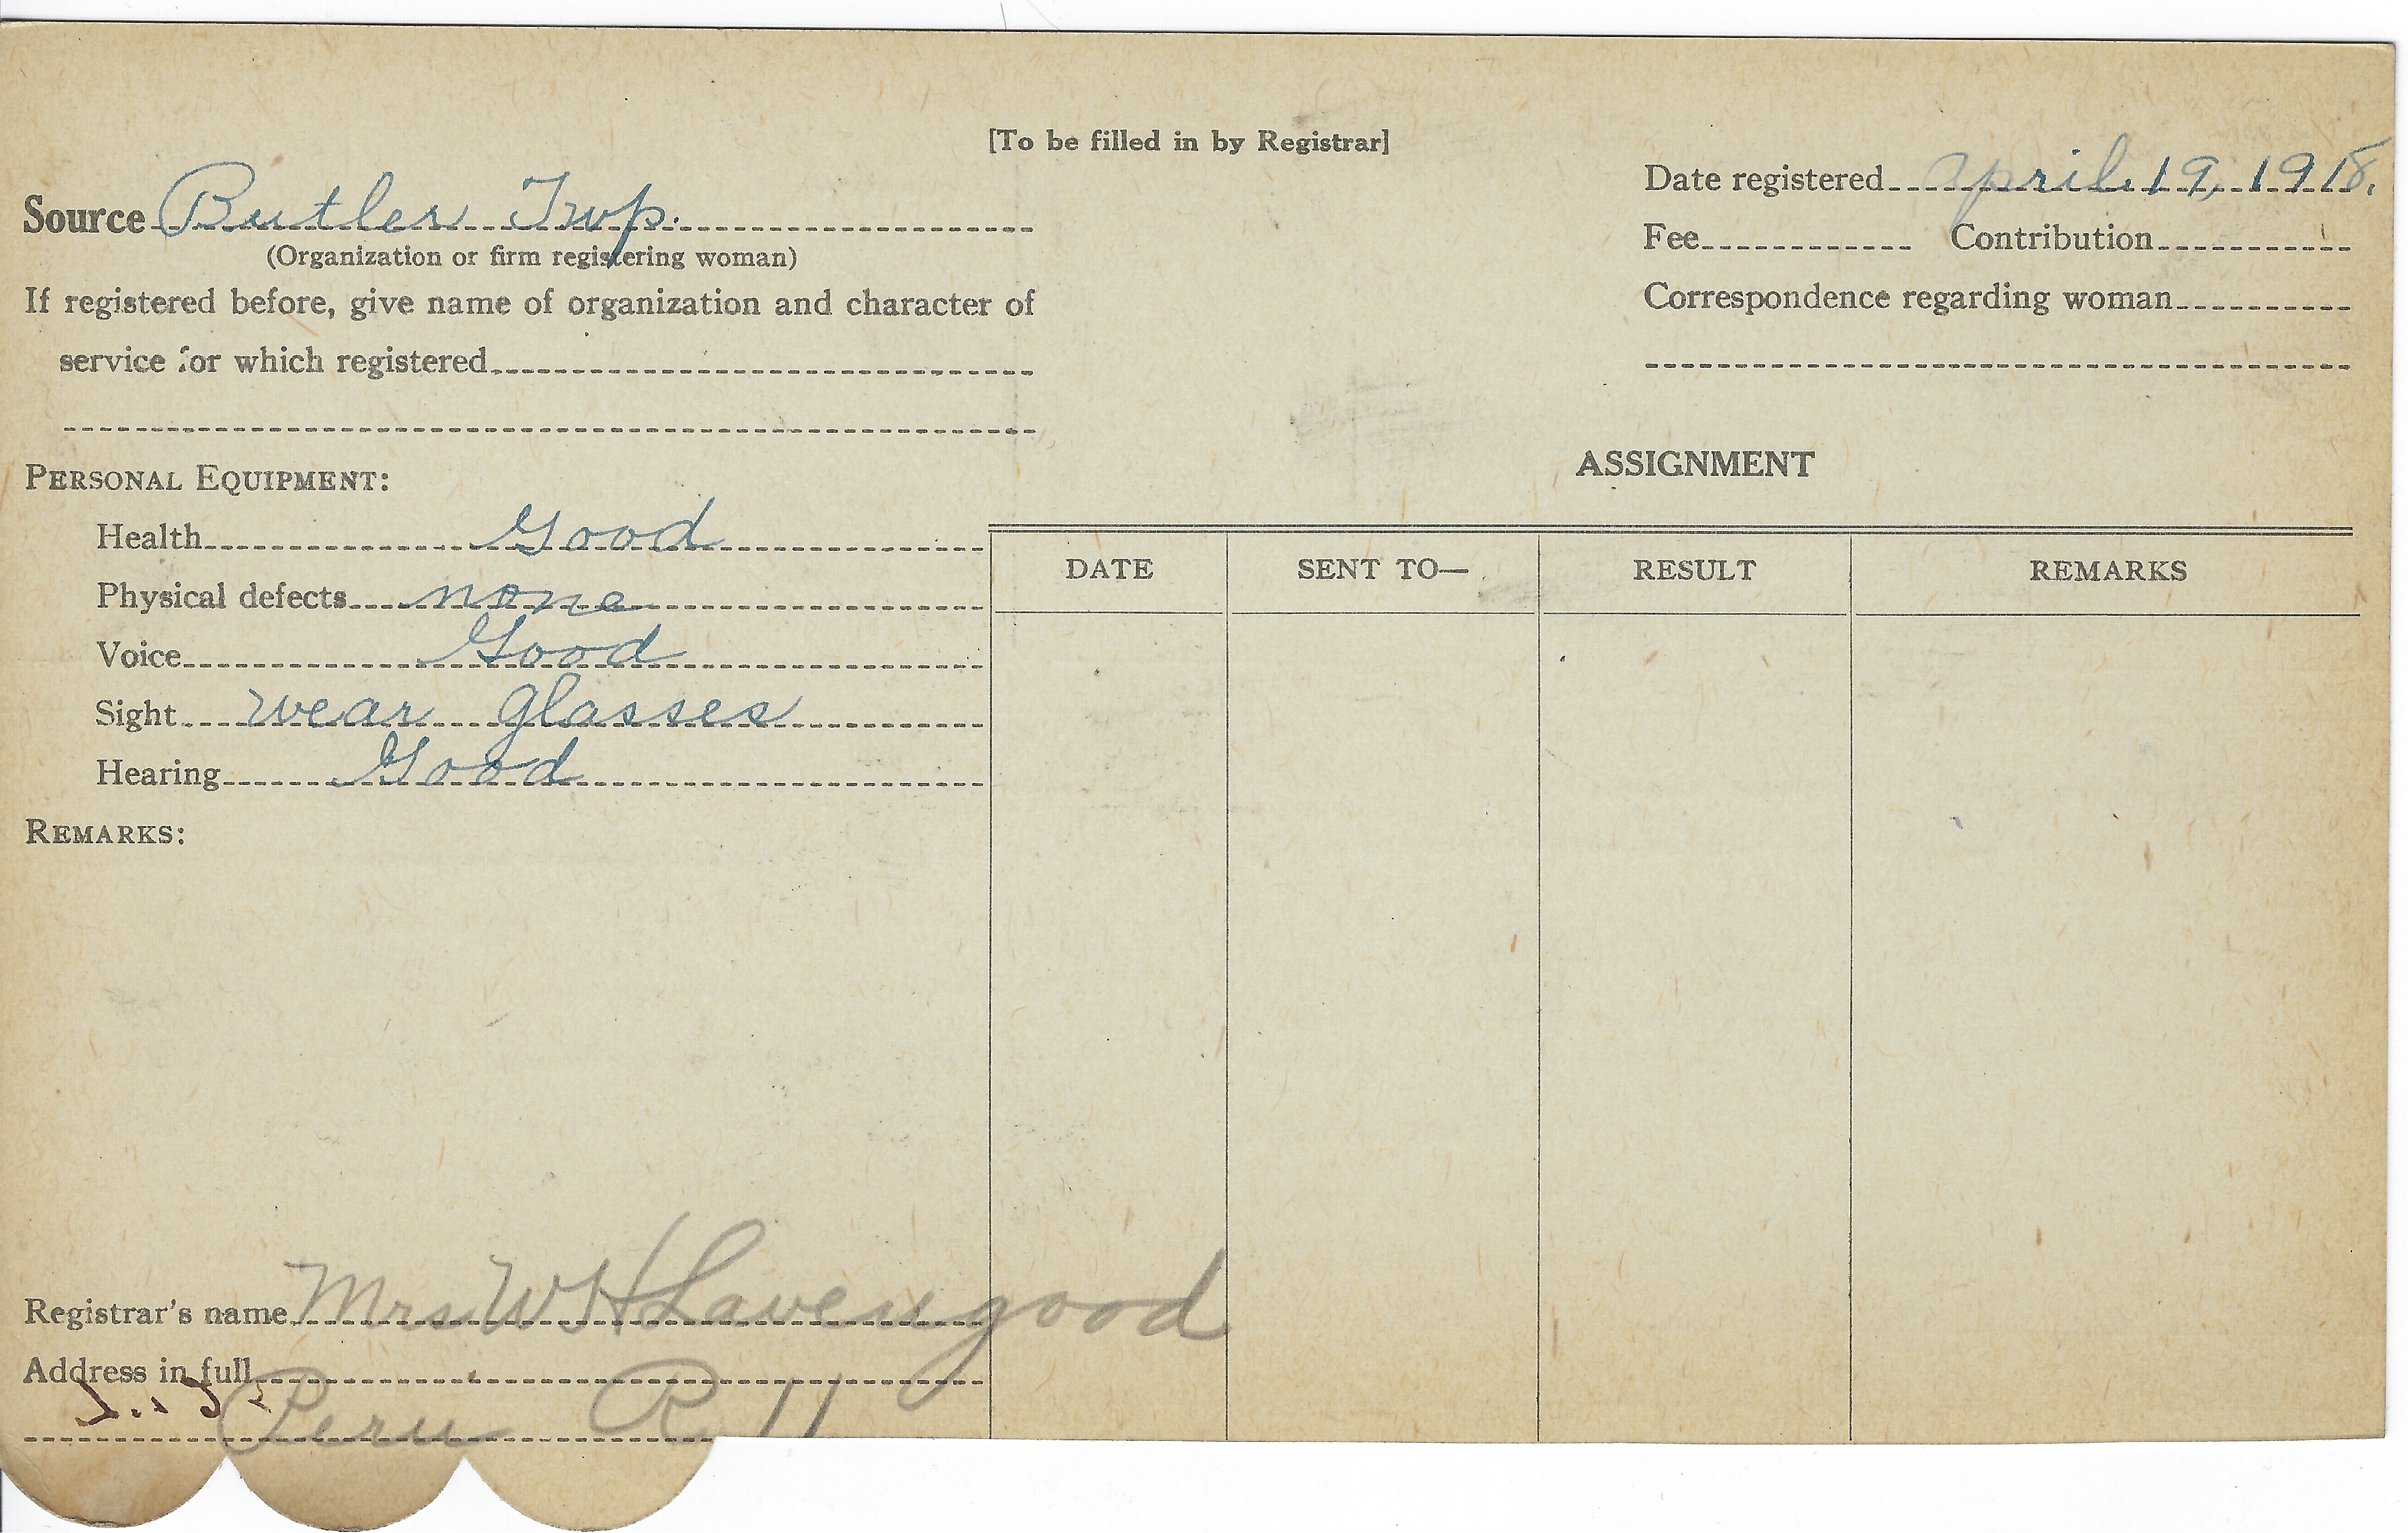 [To be filled in by Registrar]
Source Butler Twp.
(Organization or firm registering woman)
If registered before, give name of organization and character of
service for which registered
Date registered April 19, 1918.
Fee Contribution
Correspondence regarding woman
PERSONAL EQUIPMENT:
Health Good
Physical defects none
Voice Good
Sight wear glasses
Hearing Good
REMARKS:
ASSIGNMENT
DATE SENT TO— RESULT REMARKS
Registrar's name Mrs W H Lavengood
Address in full
Peru R 11